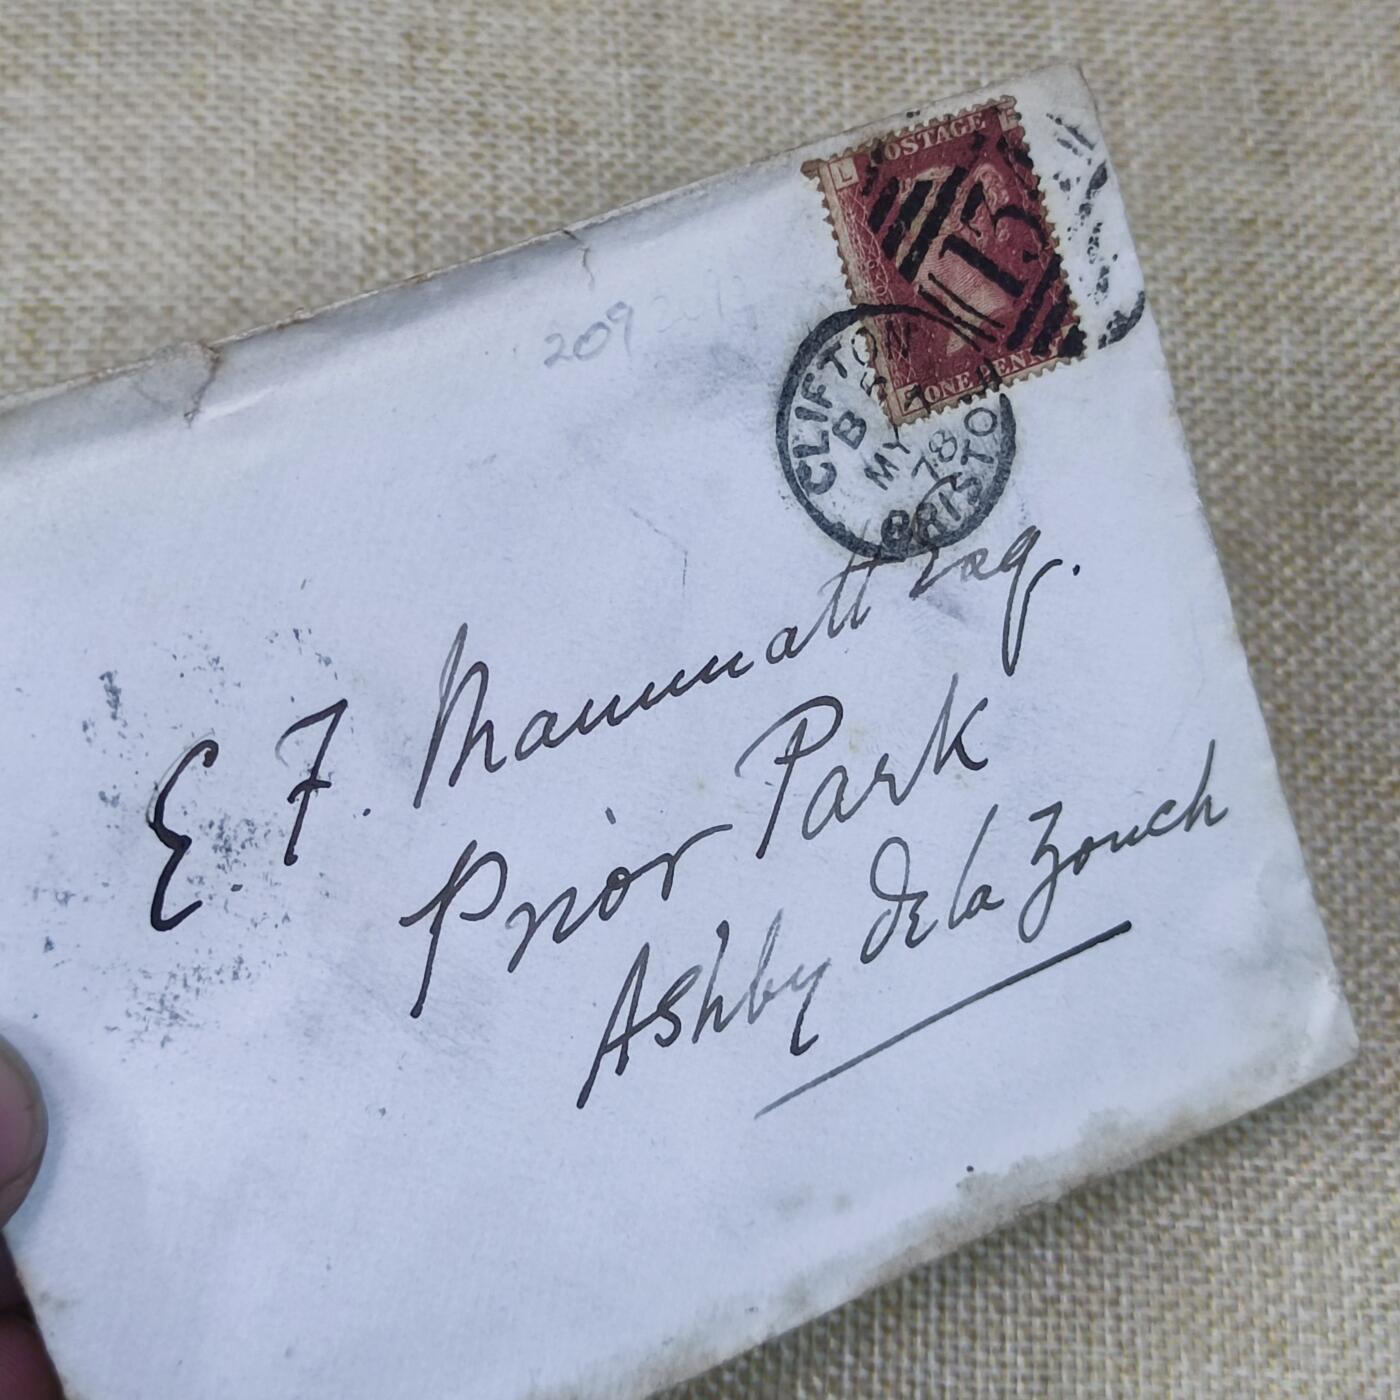 POSTAGE
L
13
ONE PENNY
CLIFTON
B
MY 7
78
BRISTOL
209
E. F. Mammatt Esq.
Prior Park
Ashby de la Zouch